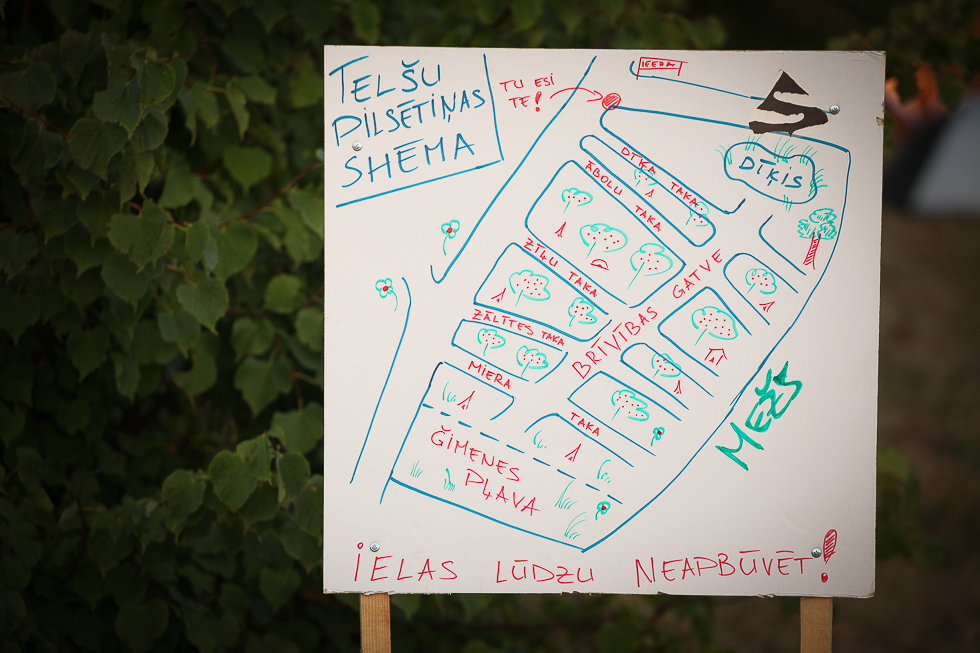 TELŠU
PILSĒTIŅAS
SHĒMA
TU ESI
TE!
IEEJA
DĪĶIS
DĪĶA TAKA
ĀBOLU TAKA
ZĪĻU TAKA
ZĀLĪTES TAKA
MIERA
TAKA
BRĪVĪBAS GATVE
MEŽS
ĢIMENES
PĻAVA
IELAS LŪDZU NEAPBŪVĒT!